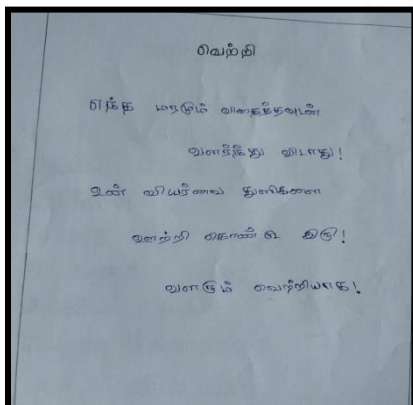 வெற்றி
எந்த மரமும் விதைத்தவுடன்
வளர்ந்து விடாது!
உன் வியர்வை துளிகளை
ஊற்றி கொண்டு இரு!
வளரும் வெற்றியாக!